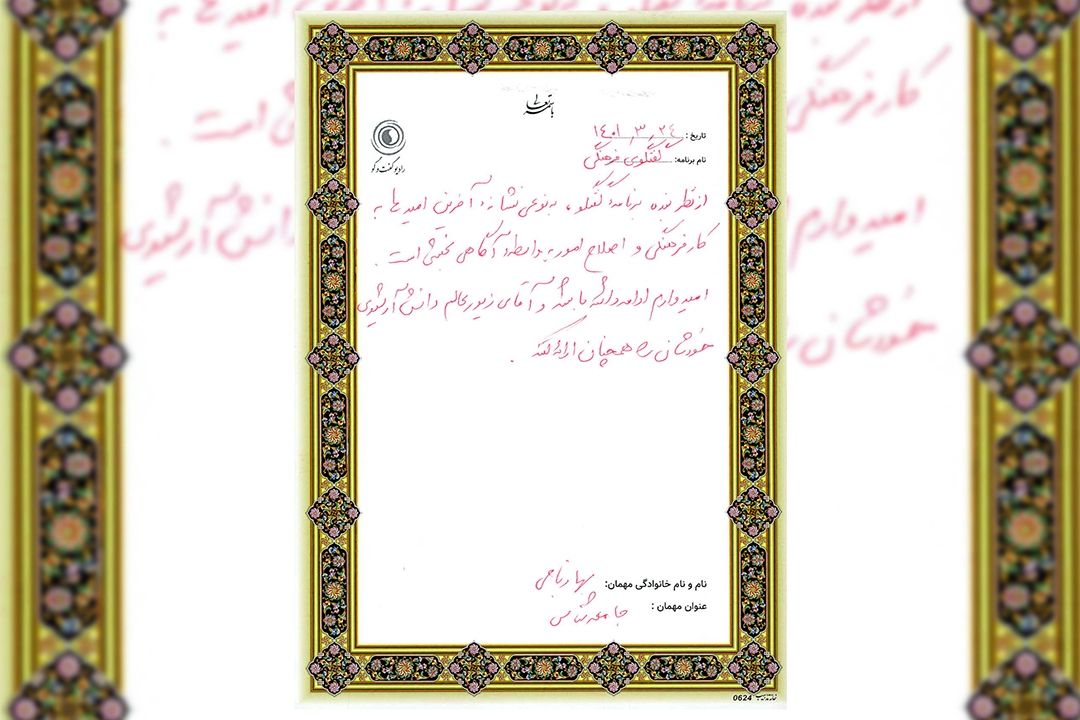 باسمه تعالی
رادیو گفت و گو
تاریخ: ۱۴۰۱،۳،۲٤
نام برنامه: گفتگوی فرهنگی
از نظر بنده برنامهٔ گفتگو، به نوعی نشانهٔ آخرین امیدها به
کار فرهنگی و اصلاح امور به واسطهٔ آگاهی بخشی است.
امیدوارم ادامه داشته باشد و آقای زیورعالم دانش آرشیوی
خودشان را همچنان ارائه کنند.
نام و نام خانوادگی مهمان: بهار
عنوان مهمان: جامعه شناس
0624